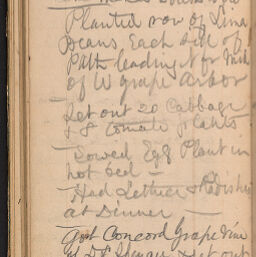 Planted row of Lima
Beans Each side of
Path leading fr
of W grape Arbor
Set out 20 Cabbage
& 8 tomato plants
Sowed Egg Plant in
hot bed —
Had Lettuce & Radishes
at Dinner —
Got Concord Grape Vine
& set out